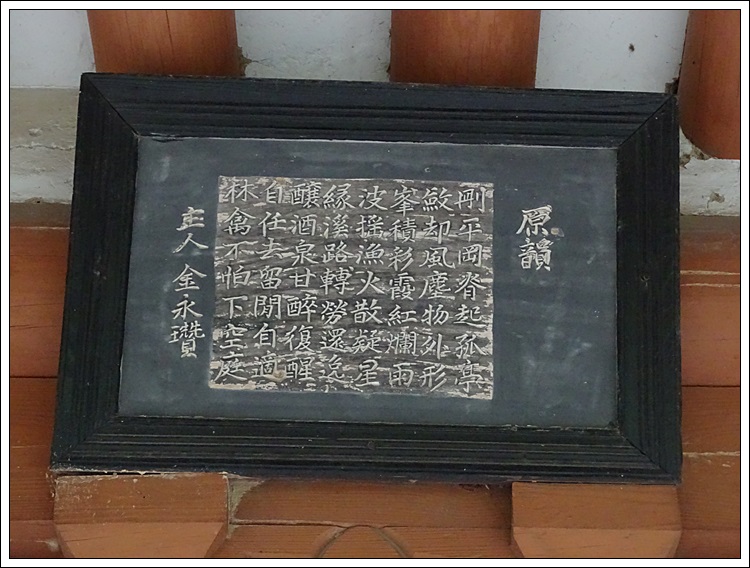 原韻
刪平岡脊起孤亭
斂却風塵物外形
峯積彩霞紅爛雨
波搖漁火散疑星
緣溪路轉勞還逸
釀酒泉甘醉復醒
自任去留閒自適
林禽不怕下空庭
主人 金永瓚